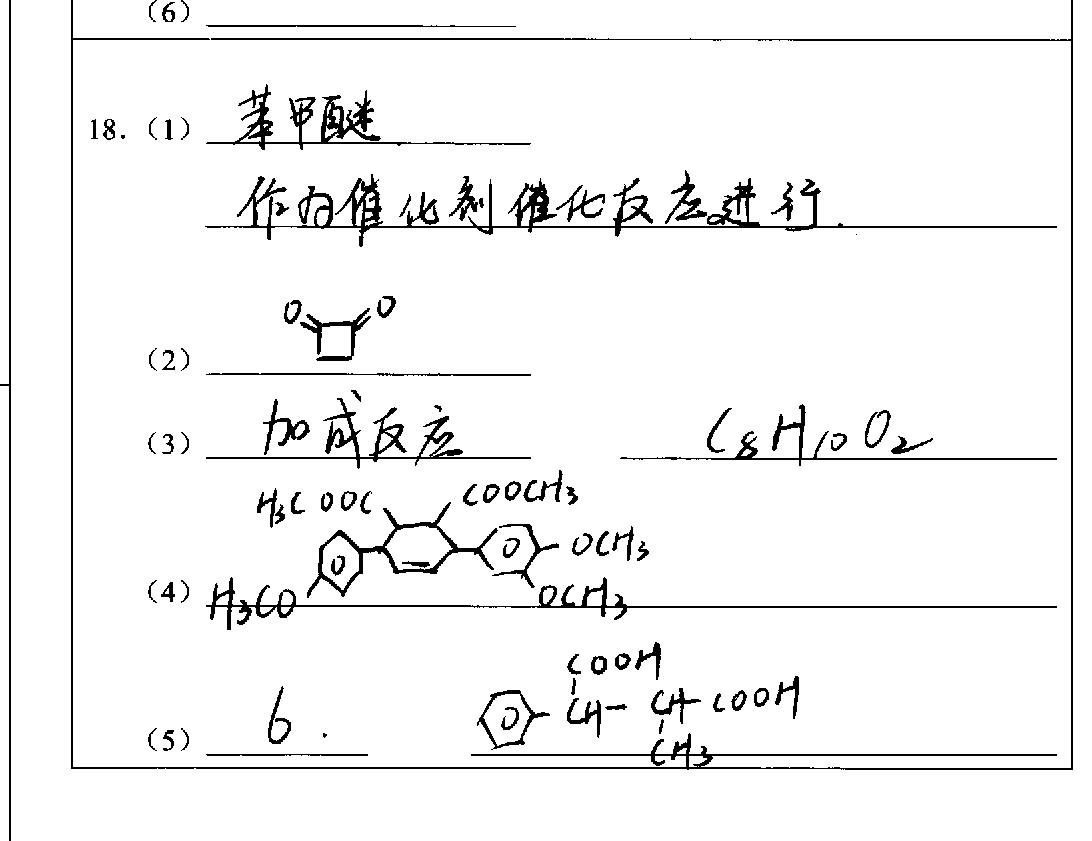 (6)
18. (1) 苯甲醚
作为催化剂催化反应进行.
O O
(2)
(3) 加成反应 C8H10O2
H3COOC COOCH3
OCH3
(4) H3CO OCH3
COOH
CH- CH- COOH
(5) 6.
CH3